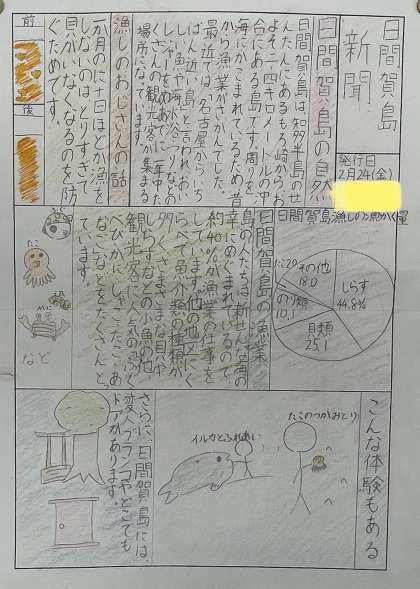 日間賀島
新聞
発行日
2月24(金)
日間賀島の自然
日間賀島は、知多半島のせ
んたんにあるもろ崎からお
よそ二・四キロメートルの沖
合にある島です。周りを
海にかこまれているため、昔
から漁業がさかんでした。
最近では、名古屋からいち
ばん近い島と言われおい
しい魚や海水浴、つりなどの
レジャーをもとめて一年中た
くさんの観光客が集まる
場所になっています。
漁しのおじさんの話
一か月のに十日ほどしか漁を
しないのはとりすぎて
貝がいなくなるのを防
ぐためです。
前
後
日間賀島漁しの漁かく量
しらす
44.8%
貝類
25.1
のり類
10.1
たこ2.0
その他
18.0
日間賀島の漁業
島の人たちは、新せんな海の
幸にめぐまれているので、
約40%が漁業の仕事を
しています。他の地区にく
らべて魚介類の種類が
多く、さまざまな貝や
しらすなどの小魚の他、
観光客に人気のふぐ
べびかに、しゃこ、たこ、あ
なごなどをたくさんとっ
ています。
ふぐ
たこ
かに
など
こんな体験もある
たこのつかみどり
イルカとふれあい
さらに、日間賀島には、
変人ブランコやどこでも
ドアがあります。